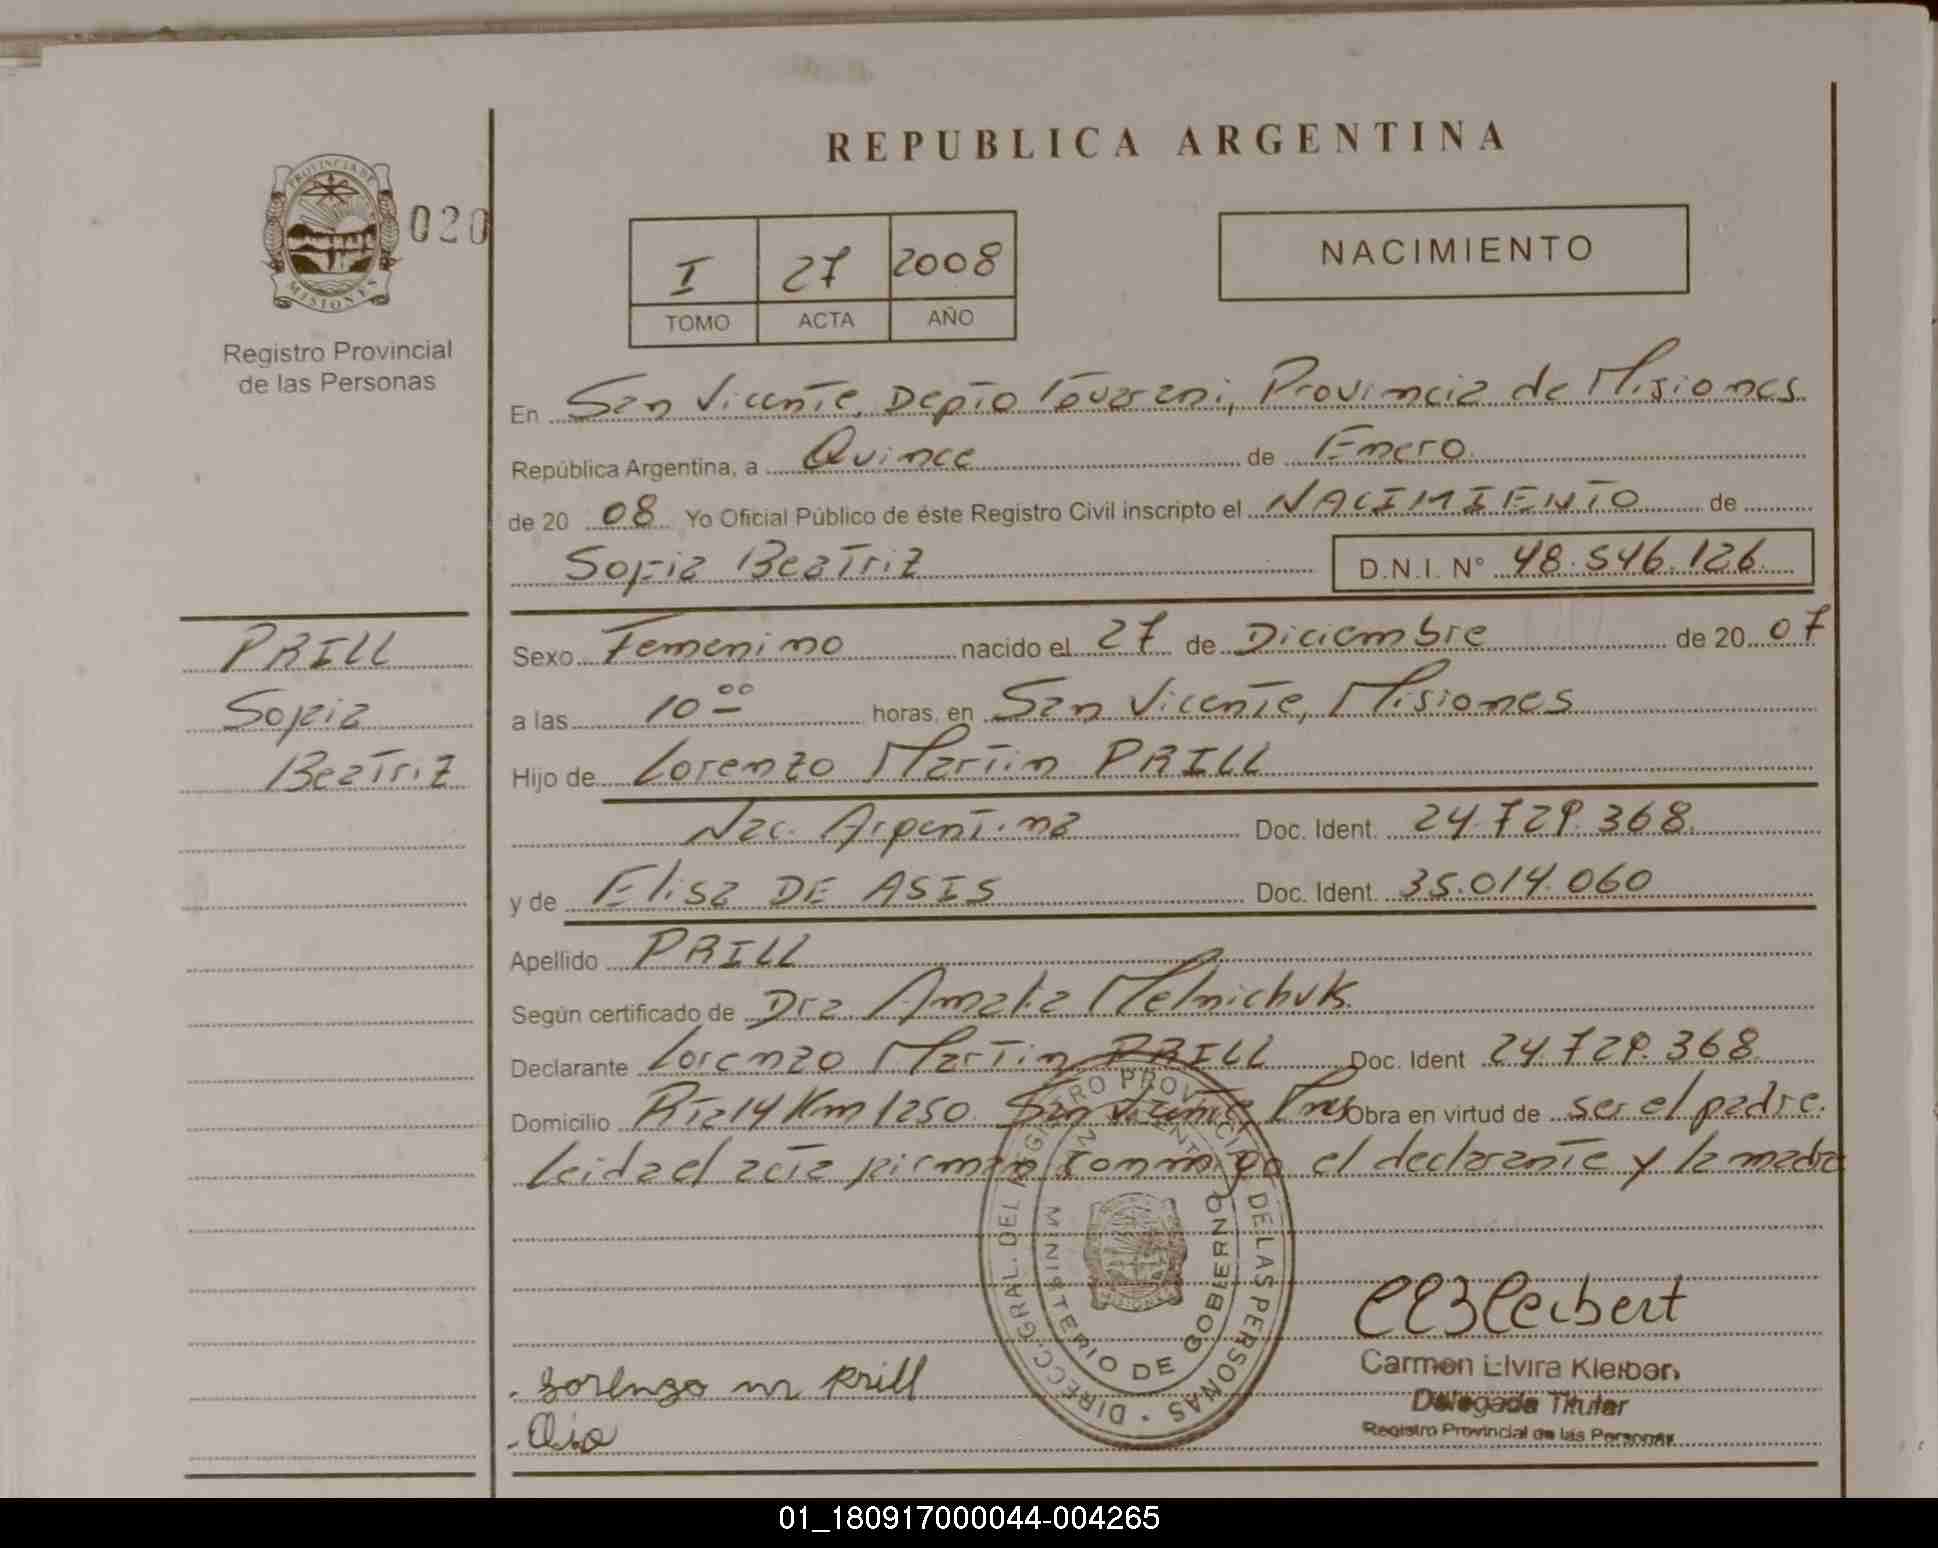 REPUBLICA ARGENTINA
PROVINCIA DE MISIONES
020
Registro Provincial
de las Personas
I 27 2008
TOMO ACTA AÑO
NACIMIENTO
En San Vicente, Depto Guarani, Provincia de Misiones
República Argentina, a Quince de Enero
de 20 08 Yo Oficial Público de éste Registro Civil inscripto el NACIMIENTO de
Sofia Beatriz D.N.I. N° 48.546.126
PRILL
Sofia
Beatriz
Sexo Femenino nacido el 27 de Diciembre de 20 07
a las 10 00 horas, en San Vicente, Misiones
Hijo de Lorenzo Martin PRILL
Nac. Argentina Doc. Ident. 24.729.368
y de Elisa DE ASIS Doc. Ident. 35.014.060
Apellido PRILL
Según certificado de Dra Amalia Melnichuk
Declarante Lorenzo Martin PRILL Doc. Ident 24.729.368
Domicilio Rta 14 Km 1250 San Vicente, Mnes Obra en virtud de ser el padre.
Leida el acta firman conmigo el declarante y la madre
DIRECC. GRAL. DEL REGISTRO PROVINCIAL DE LAS PERSONAS
MINISTERIO DE GOBIERNO
Lorenzo M Prill
Carmen Elvira Kleibert
Delegada Titular
Registro Provincial de las Personas
01_180917000044-004265